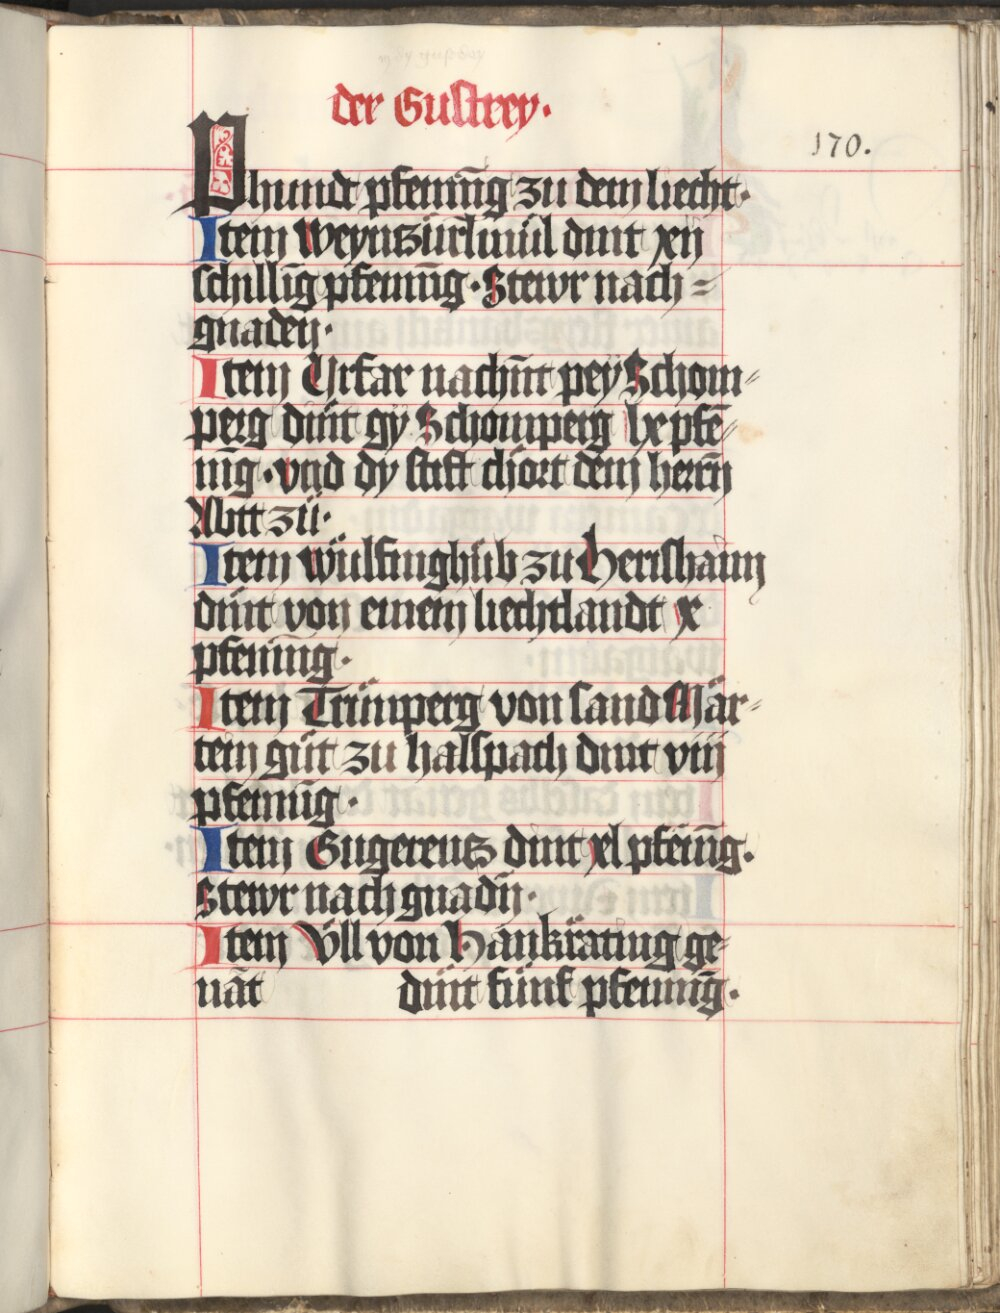 der Gustrey.
170.
Phundt pfenīng zu dem liecht.
Item Weyntzürlmül dint xij
schilling pfenīng. Stewr nach=
gnaden.
Item Urfar nachn̄t pey Schom-
perg dint gen Schomperg lx pfe-
nīg. vnd dy stift chort dem herrn̄
Abtt zü.
Item Wülfinghüb zu Herishaim
dint von einem liechtlandt x
pfenīng.
Item Trümperg von sand Mär-
tein güt zu halspach dint viij
pfenīng.
Item Gugereutz dint xl pfenīng.
Stewr nach gnadn̄.
Item Üll von Hänkrating ge-
nāt dint fünf pfenīng.